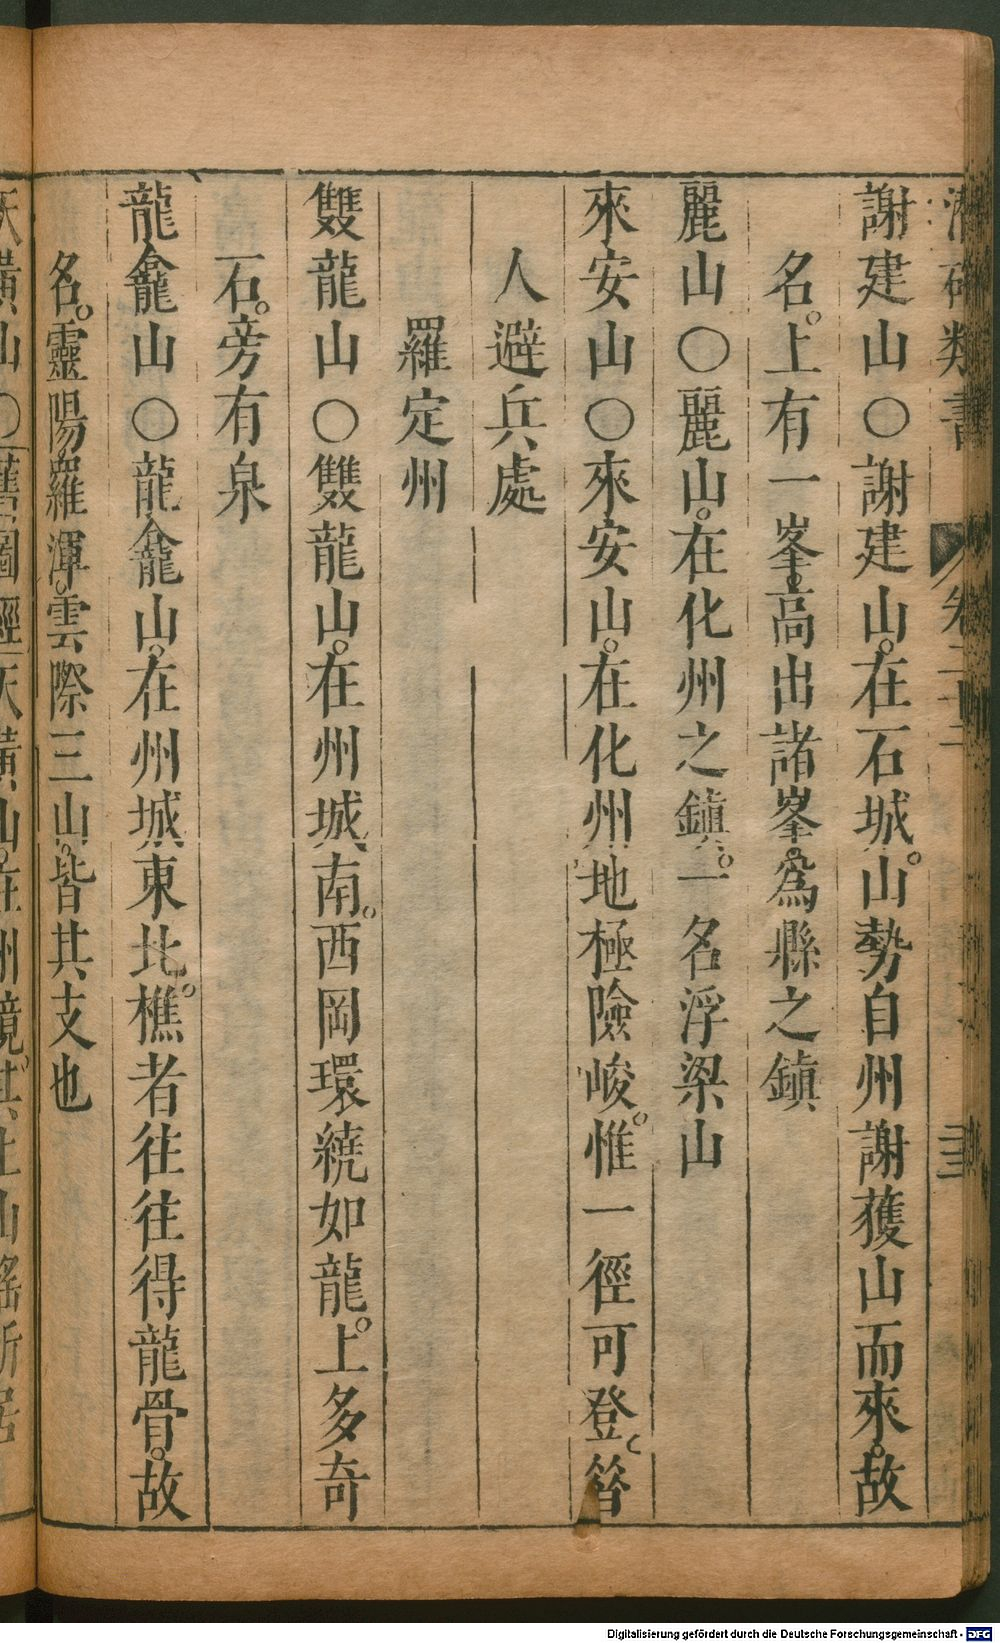 謝建山○謝建山。在石城。山勢自州謝獲山而來。故
名。上有一峯。高出諸峯。爲縣之鎮
麗山○麗山。在化州之鎮。一名浮梁山
來安山○來安山。在化州。地極險峻。惟一徑可登。昝
人避兵處
羅定州
雙龍山○雙龍山。在州城南。西岡環繞如龍。上多奇
石。旁有泉
龍龕山○龍龕山。在州城東北。樵者往往得龍骨。故
名。靈陽羅渾。雲際三山。皆其支也
Digitalisierung gefördert durch die Deutsche Forschungsgemeinschaft - DFG